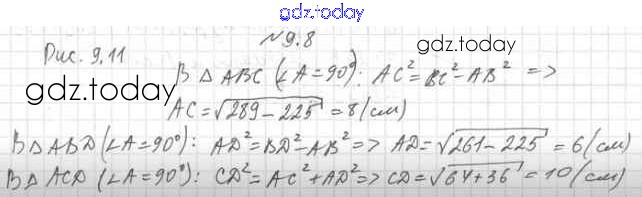 gdz.today
№9.8
Рис. 9.11
gdz.today
В △ ABC (∠A=90°): AC²=BC²-AB² =>
gdz.today
AC=√289-225=8(см)
В △ ABD (∠A=90°): AD²=BD²-AB²=> AD=√261-225=6(см)
В △ ACD (∠A=90°): CD²=AC²+AD²=> CD=√64+36=10(см)